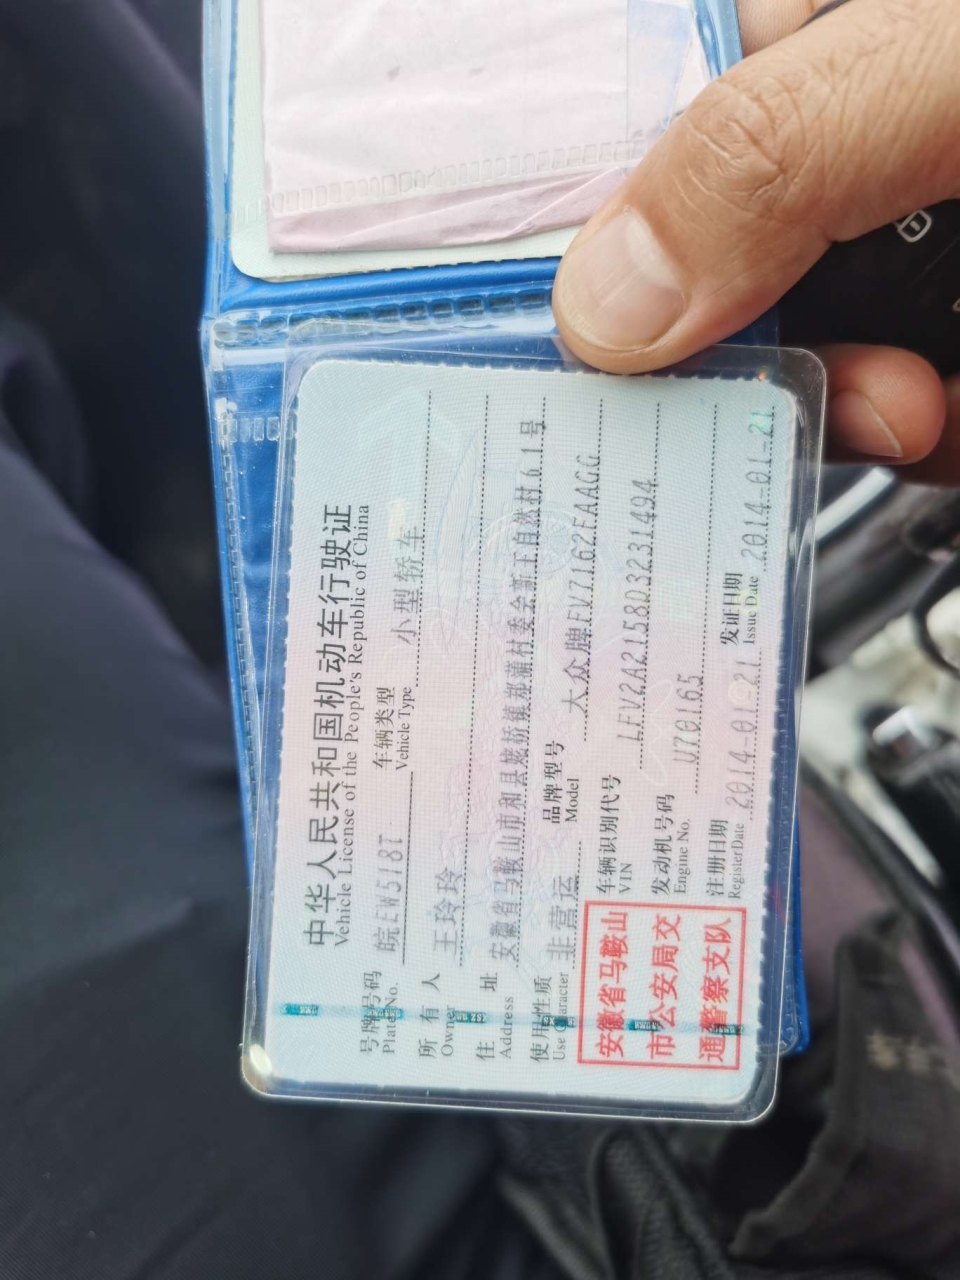 中华人民共和国机动车行驶证
Vehicle License of the People's Republic of China
号牌号码 皖EW518T 车辆类型 小型轿车
Plate No. Vehicle Type
所有人 王玲玲
Owner
住址 安徽省马鞍山市和县姥桥镇郑蒲村委会新王自然村61号
Address
使用性质 非营运 品牌型号 大众牌FV7162FAAGG
Use Character Model
安徽省马鞍山
市公安局交
通警察支队
车辆识别代号 LFV2A2158D3231494
VIN
发动机号码 U70165
Engine No.
注册日期 2014-01-21 发证日期 2014-01-21
Register Date Issue Date